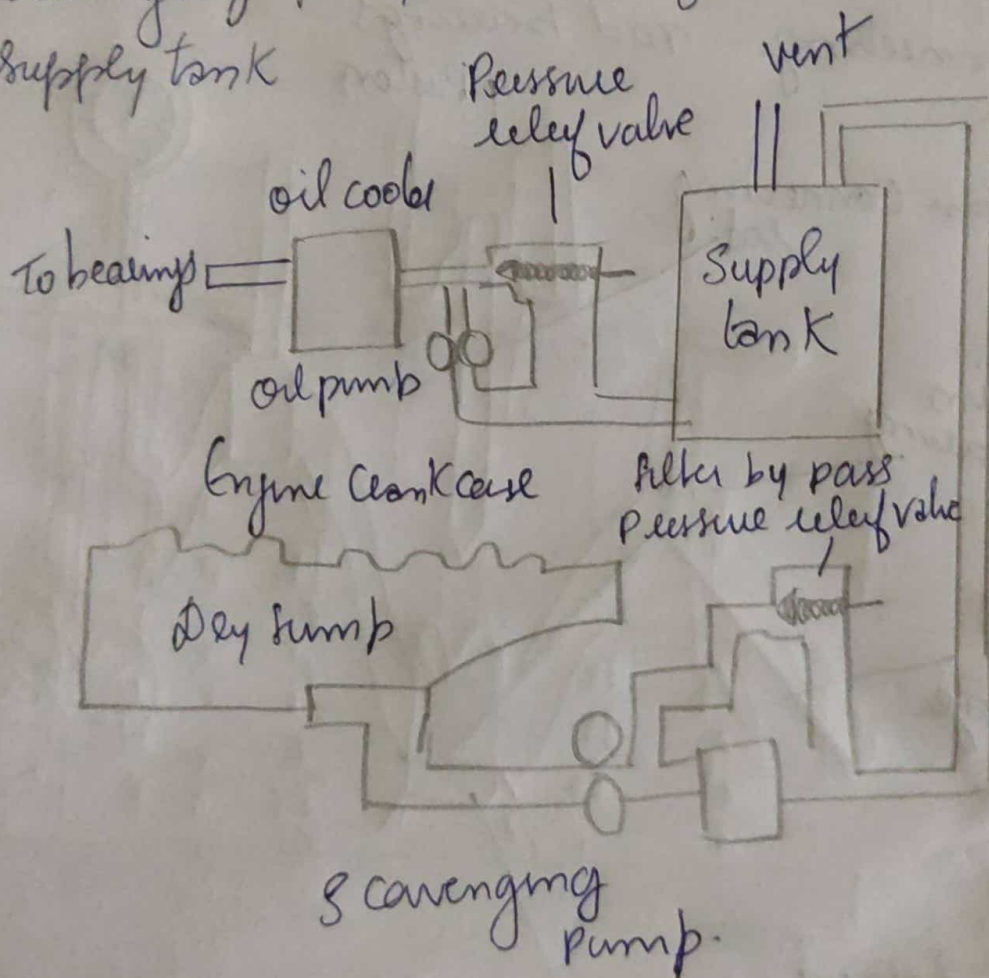 Supply tank
Pressure
relief valve
vent
oil cooler
To bearings
Supply
tank
oil pump
Engine Crankcase
filter by pass
Pressure relief valve
Dry Sump
Scavenging
Pump.